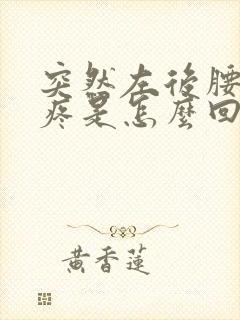 突然左後腰
疼是怎麼回
黃香蓮